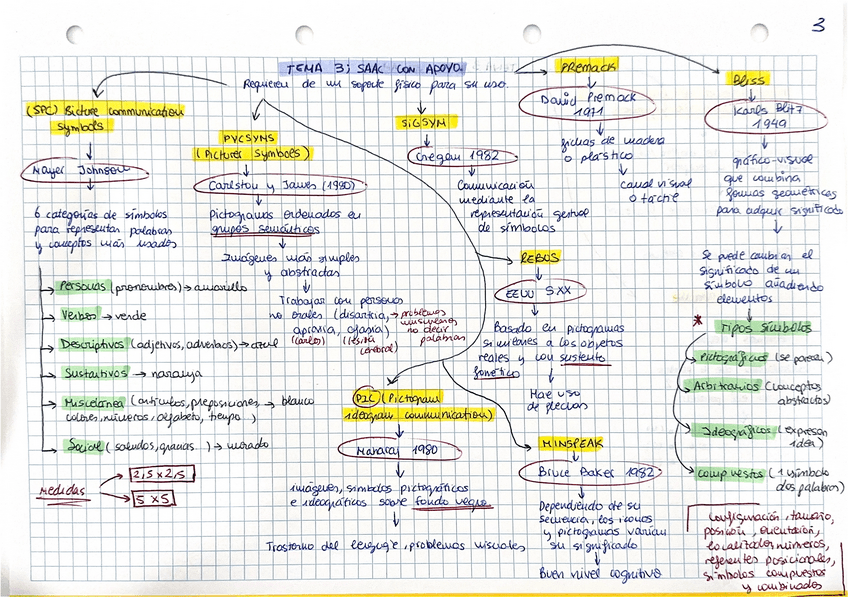 3
TEMA 3: SAAC CON APOYO
Requieren de un soporte físico para su uso.
(SPC) Picture Communication
Symbols
Mayer Johnson
6 categorías de símbolos
para representar palabras
y conceptos más usados
Personas (pronombres) → amarillo
Verbos → verde
Descriptivos (adjetivos, adverbios) → azul
Sustantivos → naranja
Miscelánea (artículos, preposiciones, → blanco
colores, números, alfabeto, tiempo,)
Social (saludos, gracias..) → morado
Medidas
2,5 x 2,5
5 x 5
PYCSYMS
(Pictures Symbols)
Carlston y James (1980)
Pictogramas ordenados en
grupos semánticos
Imágenes más simples
y abstractas
Trabajar con personas
no orales (disartria, → problemas
musculares
apraxia, afasia) no decir
palabras
(lesión
cerebral)
SIGSYM
Cregan 1982
Comunicación
mediante la
representación gestual
de símbolos
PREMACK
David Premack
1971
fichas de madera
o plástico
Canal visual
o táctil
BLISS
1949
gráfico-visual
que combina
formas geométricas
para adquirir significado
Se puede cambiar el
significado de un
símbolo añadiendo
elementos
* Tipos símbolos
Pictográficos (se parecen)
Arbitrarios (conceptos
abstractos)
Ideográficos (expresan
idea)
Compuestos (1 símbolo
dos palabras)
Configuración, tamaño,
posición, orientación,
localizador, números,
referentes posicionales,
símbolos compuestos
y combinados
REBUS
EEUU SXX
Basado en pictogramas
similares a los objetos
reales y con sustento
fonético
Hace uso
de flechas
PIC (Pictogram
ideogram communication)
Maharaj 1980
imágenes, símbolos pictográficos
e ideográficos sobre fondo negro
Trastorno del lenguaje, problemas visuales
MINSPEAK
Bruce Baker 1982
Dependiendo de su
secuencia, los iconos
y pictogramas varían
su significado
Buen nivel cognitivo